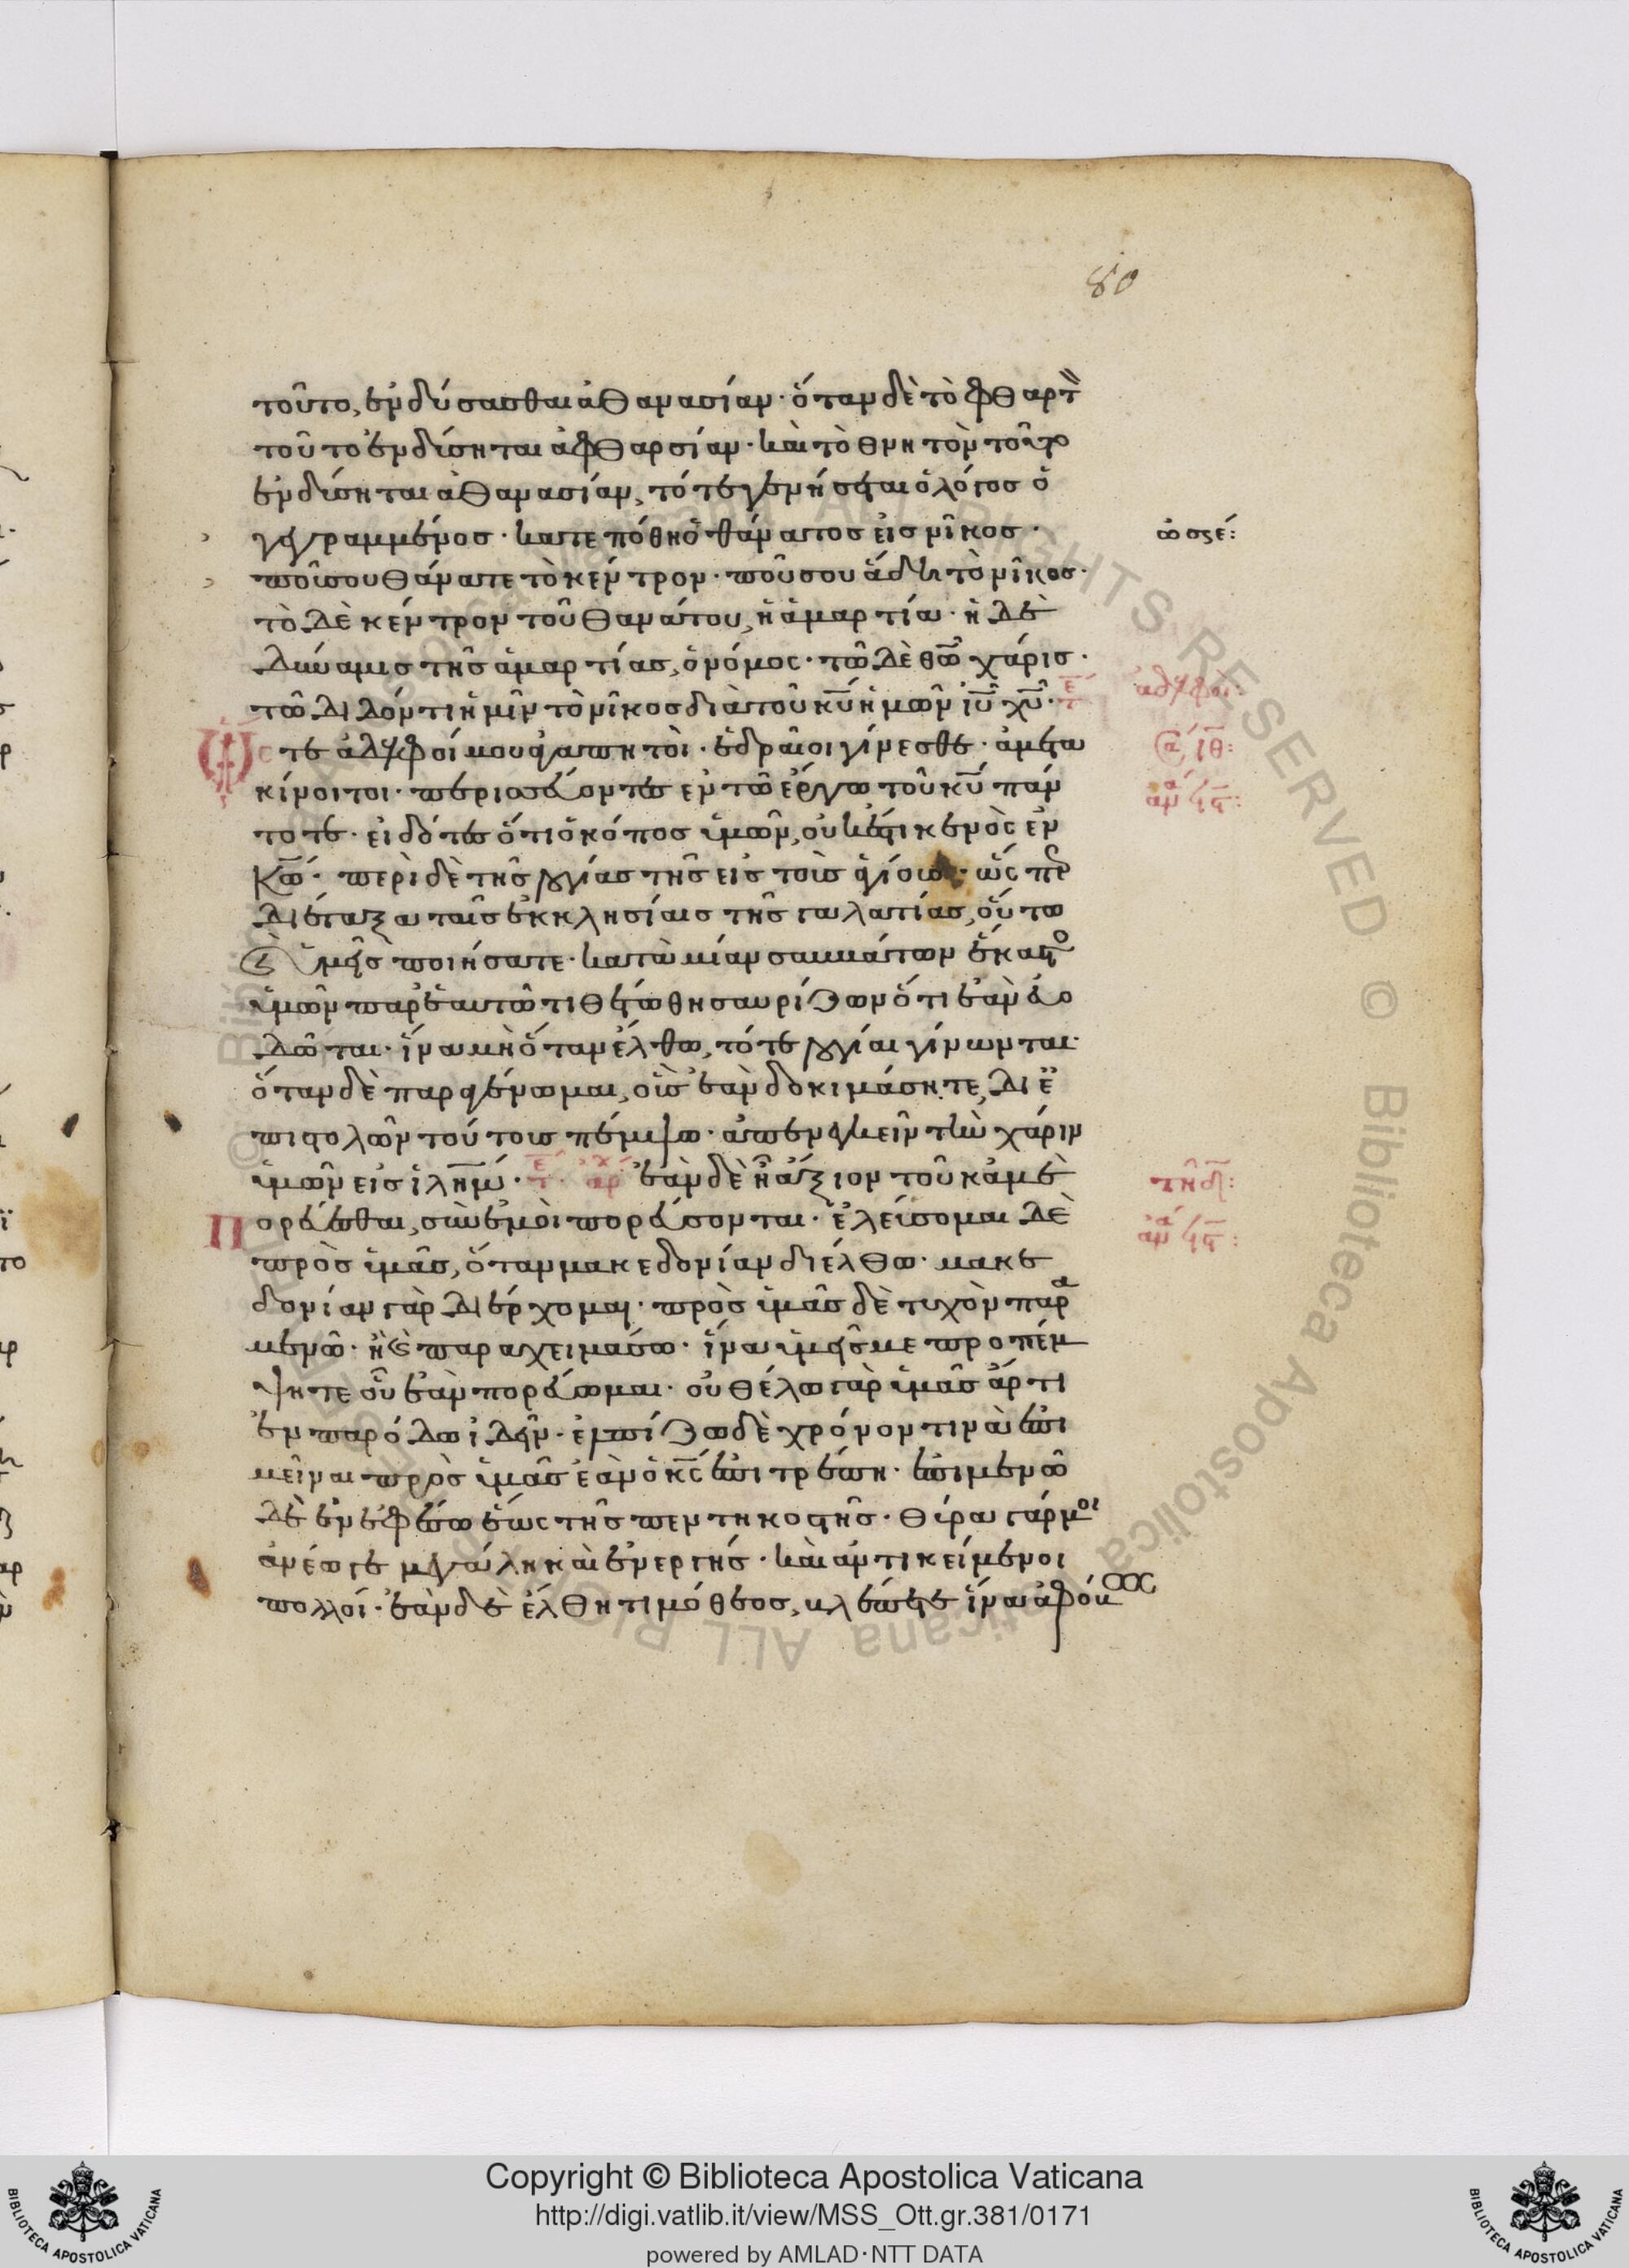 80
τοῦτο, ἐνδύσασθαι ἀθανασίαν· ὅταν δὲ τὸ φθαρτὸν
τοῦτο ἐνδύσηται ἀφθαρσίαν· καὶ τὸ θνητὸν τοῦτο
ἐνδύσηται ἀθανασίαν, τότε γενήσεται ὁ λόγος ὁ
γεγραμμένος· κατεπόθη ὁ θάνατος εἰς νῖκος·
ὠσηέ:
ποῦ σου θάνατε τὸ κέντρον· ποῦ σου ἅδη τὸ νῖκος·
τὸ δὲ κέντρον τοῦ θανάτου, ἡ ἁμαρτία· ἡ δὲ
δύναμις τῆς ἁμαρτίας, ὁ νόμος· τῶ δὲ θω χάρις·
τῶ διδόντι ἡμῖν τὸ νῖκος διὰ τοῦ κυ ἡμῶν ιυ χυ·
ἀδελφοί:
Ὥστε ἀδελφοί μου ἀγαπητοὶ· ἑδραῖοι γίνεσθε· ἀμετα
κίνητοι· περισσεύοντες ἐν τῶ ἔργω τοῦ κυ πάν
τοτε· εἰδότες ὅτι ὁ κόπος ὑμῶν, οὐκ ἔστι κενὸς ἐν
κω· περὶ δὲ τῆς λογίας τῆς εἰς τοὺς ἁγίους· ὥσπερ
διέταξα ταῖς ἐκκλησίαις τῆς γαλατίας, οὕτω
καὶ ὑμεῖς ποιήσατε· κατὰ μίαν σαββάτων ἕκαστος
ὑμῶν παρ' ἑαυτῶ τιθέτω θησαυρίζων ὅτι ἐὰν εὐο
δῶται· ἵνα μὴ ὅταν ἔλθω, τότε λογίαι γίνωνται·
ὅταν δὲ παραγένωμαι, οὓς ἐὰν δοκιμάσητε, δι' ἐ
πιστολῶν τούτους πέμψω· ἀπενεγκεῖν τὴν χάριν
ὑμῶν εἰς ιλημ· ἐὰν δὲ ἦ ἄξιον τοῦ κἀμὲ
Πορεύεσθαι, σὺν ἐμοὶ πορεύσονται· ἐλεύσομαι δὲ
πρὸς ὑμᾶς, ὅταν μακεδονίαν διέλθω· μακε
δονίαν γὰρ διέρχομαι· πρὸς ὑμᾶς δὲ τυχὸν παρα
μενῶ· ἢ καὶ παραχειμάσω· ἵνα ὑμεῖς με προπέμ
ψητε οὗ ἐὰν πορεύωμαι· οὐ θέλω γὰρ ὑμᾶς ἄρτι
ἐν παρόδω ἰδεῖν· ἐλπίζω δὲ χρόνον τινὰ ἐπι
μεῖναι πρὸς ὑμᾶς ἐὰν ὁ κς ἐπιτρέπη· ἐπιμενῶ
δὲ ἐν ἐφέσω ἕως τῆς πεντηκοστῆς· θύρα γάρ μοι
ἀνέωγε μεγάλη καὶ ἐνεργής· καὶ ἀντικείμενοι
πολλοί· ἐὰν δὲ ἔλθη τιμόθεος, βλέπετε ἵνα ἀφόβως
Copyright © Biblioteca Apostolica Vaticana
http://digi.vatlib.it/view/MSS_Ott.gr.381/0171
powered by AMLAD·NTT DATA
BIBLIOTECA APOSTOLICA VATICANA
BIBLIOTECA APOSTOLICA VATICANA